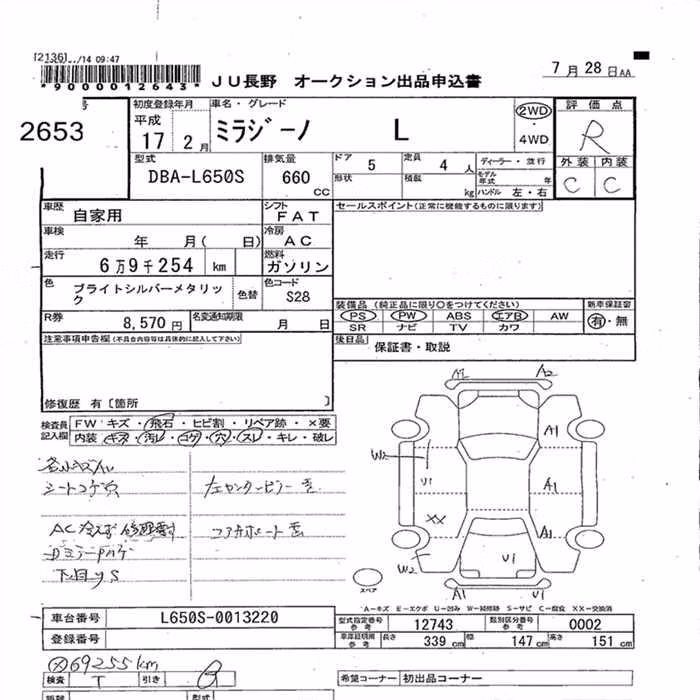 [2136] /14 09:47
*9000012643*
JU長野 オークション出品申込書
7月28日AA
号
2653
初度登録年月
平成
17 2月
車名・グレード
ミラジーノ L
2WD
・
4WD
評価点
R
型式
DBA-L650S
排気量
660
CC
ドア 5
定員 4 人
形状
積載 kg
ディーラー・並行
モデル年式 年
ハンドル 左・右
外装 内装
C C
車歴
自家用
シフト
FAT
セールスポイント(正常に機能するものに限ります)
車検
年 月( 日)
冷房
AC
走行
6万9千254 km
燃料
ガソリン
色
ブライトシルバーメタリック
色替
色コード
S28
装備品 (純正品に限り○をつけてください)
新車保証書
PS PW ABS エアB AW
SR ナビ TV カワ
有・無
R券
8,570円
名変通知期限
月 日
後日品
保証書・取説
注意事項申告欄(不具合内容等は具体的に記入して下さい)
修復歴 有〔箇所 〕
検査員記入欄
FW キズ・飛石・ヒビ割・リペア跡・×要
内装 キズ・汚レ・コゲ・穴・スレ・キレ・破レ
シートコゲ穴
左センターピラー
コアサポート
下回りS
A2
A1
W2
U1
A1
A1
XX
W2
U1
A1
U1
スペア
A-キズ E-エクボ U-凹み W-補修跡 S-サビ C-腐食 XX-交換済
車台番号
L650S-0013220
登録番号
型式指定番号 参考
12743
類別区分番号 参考
0002
車庫証明用 参考
長さ 339 cm 幅 147 cm 高さ 151 cm
69255km
検査 T
引き
希望コーナー 初出品コーナー
型式